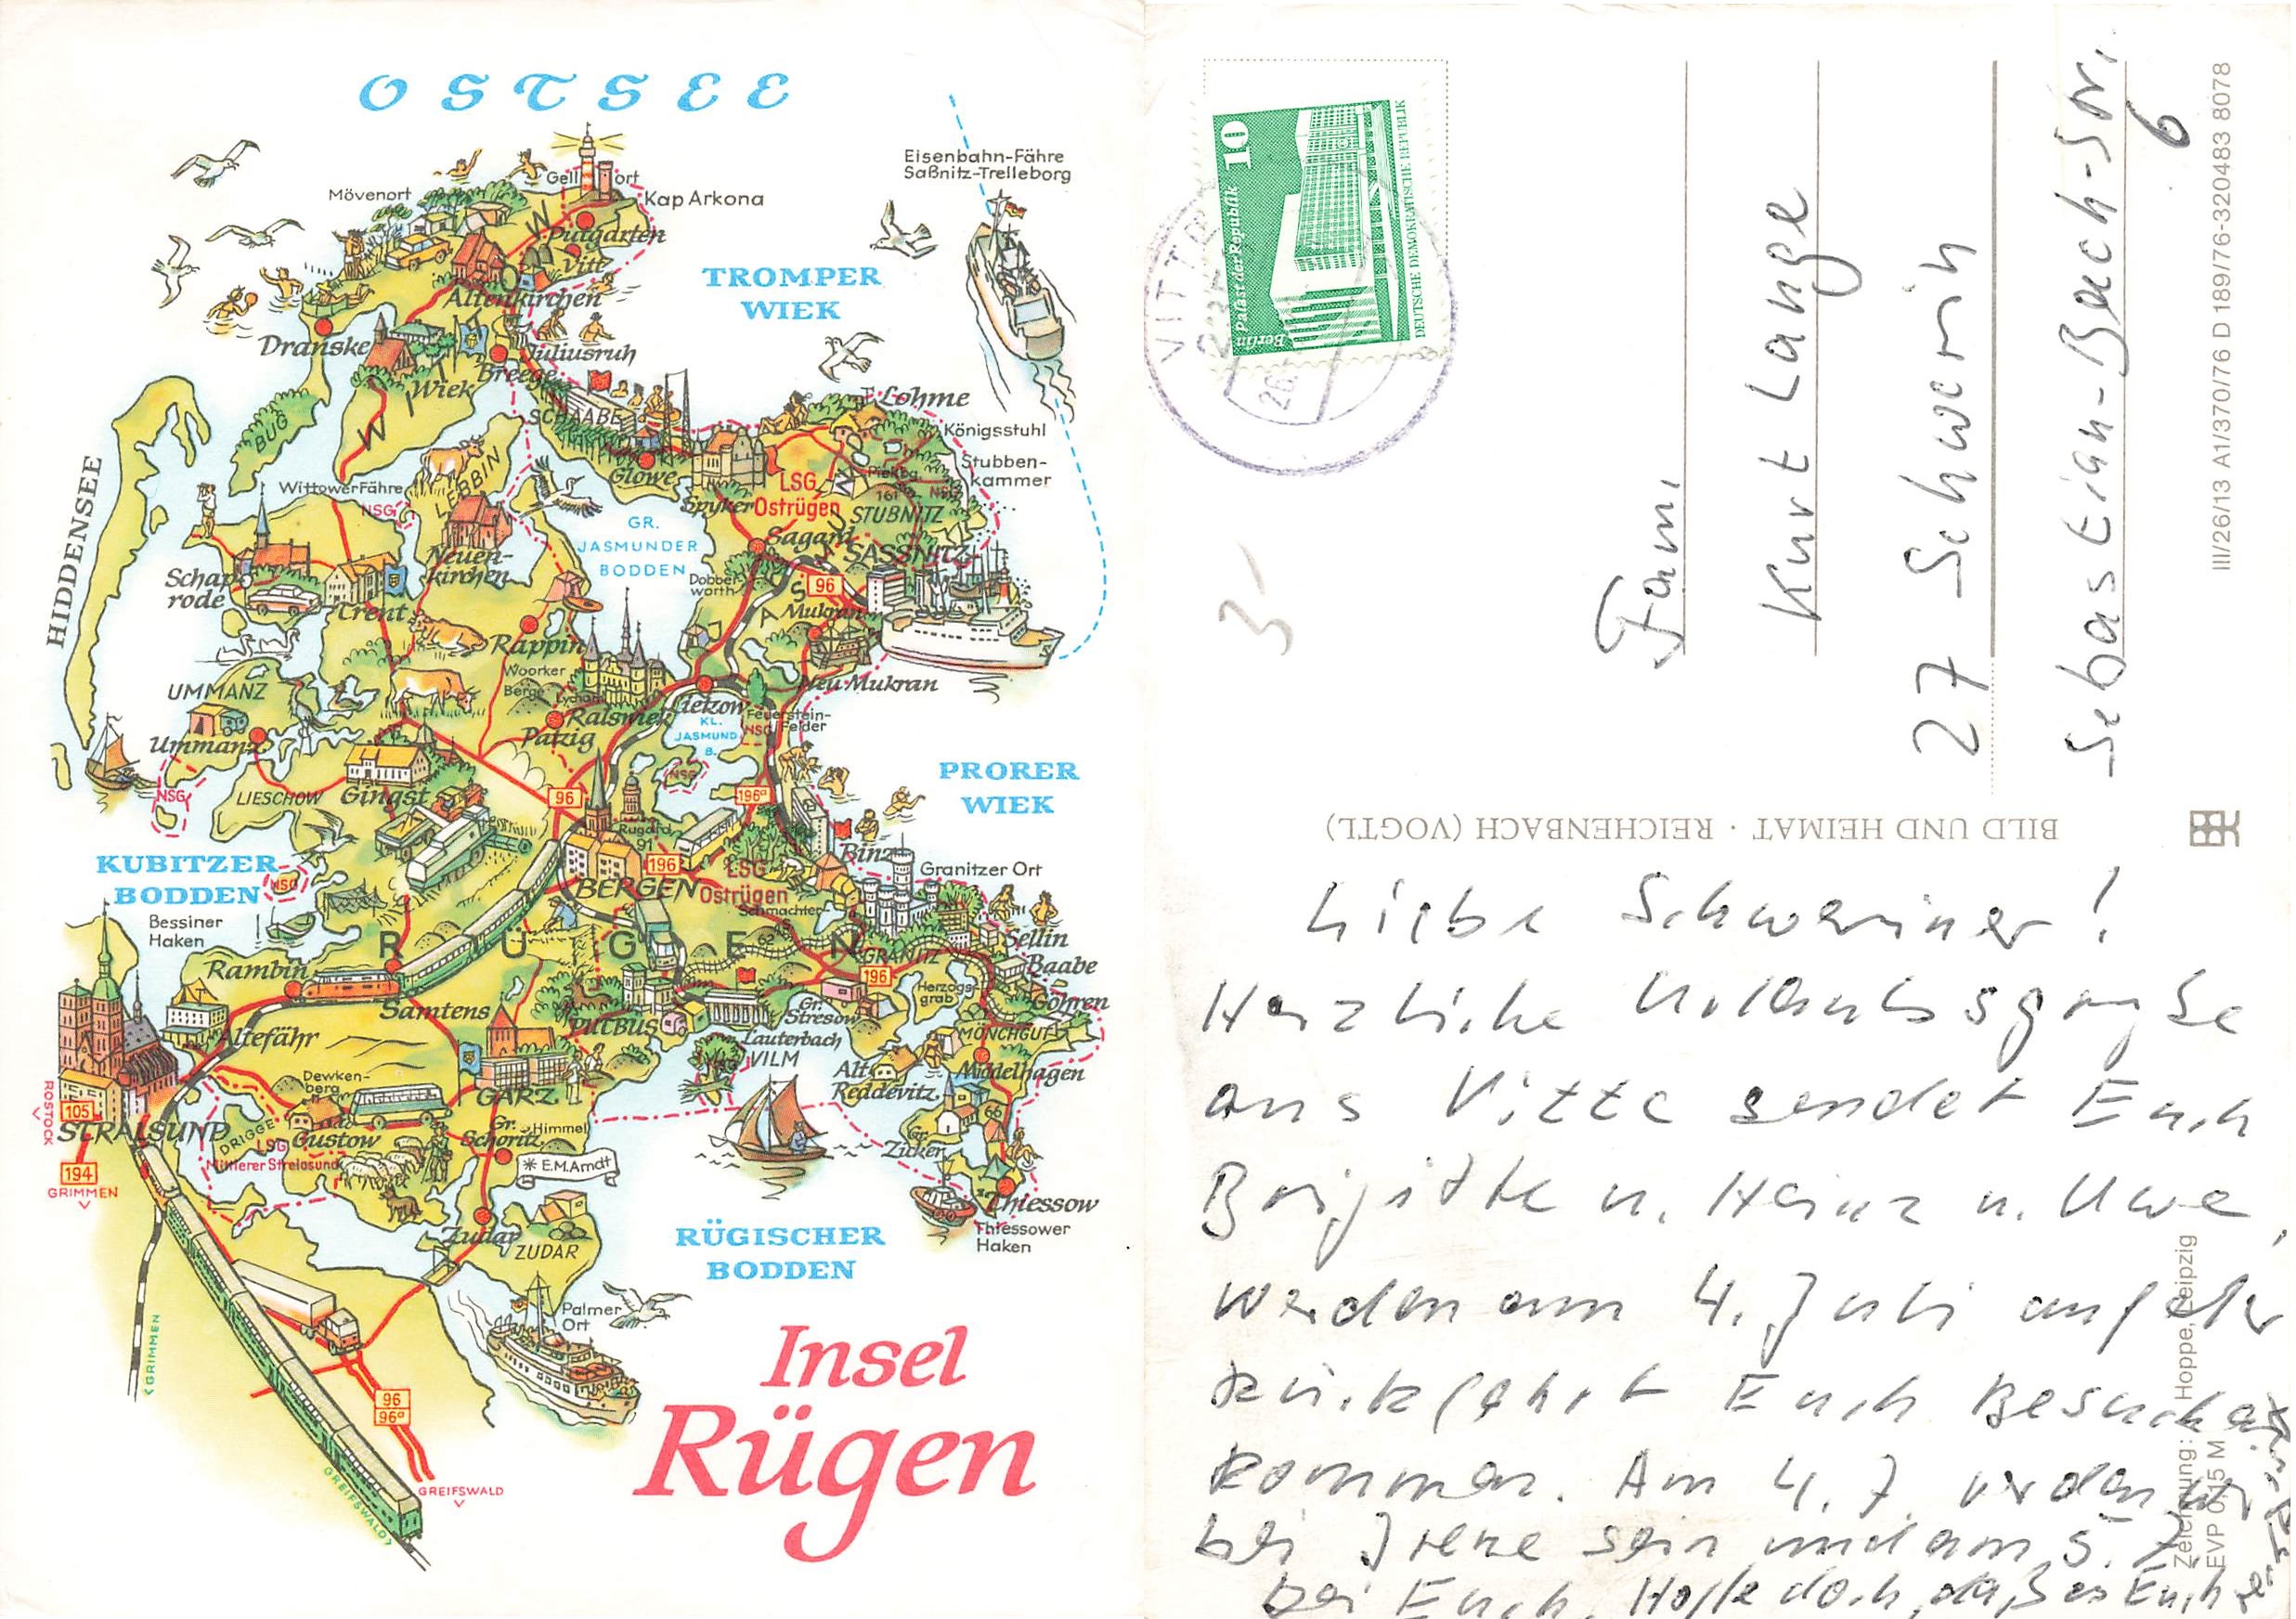 OSTSEE
Eisenbahn-Fähre
Saßnitz-Trelleborg
Mövenort
Gell ort
Kap Arkona
Putgarten
Vitt
TROMPER
WIEK
Altenkirchen
Dranske
Juliusruh
Breege
Wiek
WITTOW
SCHAABE
Lohme
BUG
Königsstuhl
Stubben-
kammer
HIDDENSEE
Wittower Fähre
LEBBIN
NSG
Glowe
Spyker
LSG
Ostrügen
Piekbg.
161
NSG
STUBNITZ
GR.
JASMUNDER
BODDEN
Sagard
SASSNITZ
JASMUND
Neuen-
kirchen
Schap-
rode
Trent
Dobber-
worth
96
Mukran
Rappin
Woorker
Berge
Neu Mukran
UMMANZ
Ralswiek
Lietzow
Feuerstein-
Felder
NSG
KL.
JASMUND
B.
Patzig
Ummanz
NSG
NSG
LIESCHOW
Gingst
96
196ª
PRORER
WIEK
Rugard
91
KUBITZER
BODDEN
NSG
196
Binz
Granitzer Ort
BERGEN
LSG
Ostrügen
Schmachter-
Bessiner
Haken
RÜGEN
GRANITZ
Sellin
Baabe
Rambin
196
Herzogs-
grab
Göhren
Samtens
Gr.
Stresow
PUTBUS
MÖNCHGUT
Altefähr
Lauterbach
VILM
Alt
Reddevitz
Middelhagen
Dewken-
berg
GARZ
66
ROSTOCK
105
STRALSUND
DRIGGE
LSG
Mittlerer Strelasund
Gustow
Gr.
Schoritz
Himmel
Gr.
Zicker
* E.M.Arndt
194
GRIMMEN
Thiessow
Thiessower
Haken
Zudar
ZUDAR
RÜGISCHER
BODDEN
Palmer
Ort
GRIMMEN
96
96ª
GREIFSWALD
GREIFSWALD
Insel
Rügen
10
Palast der Republik
Berlin
DEUTSCHE DEMOKRATISCHE REPUBLIK
3-
Fam.
Kurt Lange
27 Schwerin
Sebastian-Bach-Str.
6
III/26/13 A1/370/76 D 189/76-320483 8078
BILD UND HEIMAT · REICHENBACH (VOGTL)
Liebe Schweriner!
Herzliche Urlaubsgrüße
aus Vitte sendet Euch
Brigitte u. Heinz u. Uwe,
werden am 4. Juli auf der
Rückfahrt Euch Besuchen
kommen. Am 4. 7. werden wir
bei Irene sein und am 5. 7.
bei Euch. Hoffe doch, daß es Euch
Zeichnung: Hoppe, Leipzig
EVP 0,15 M